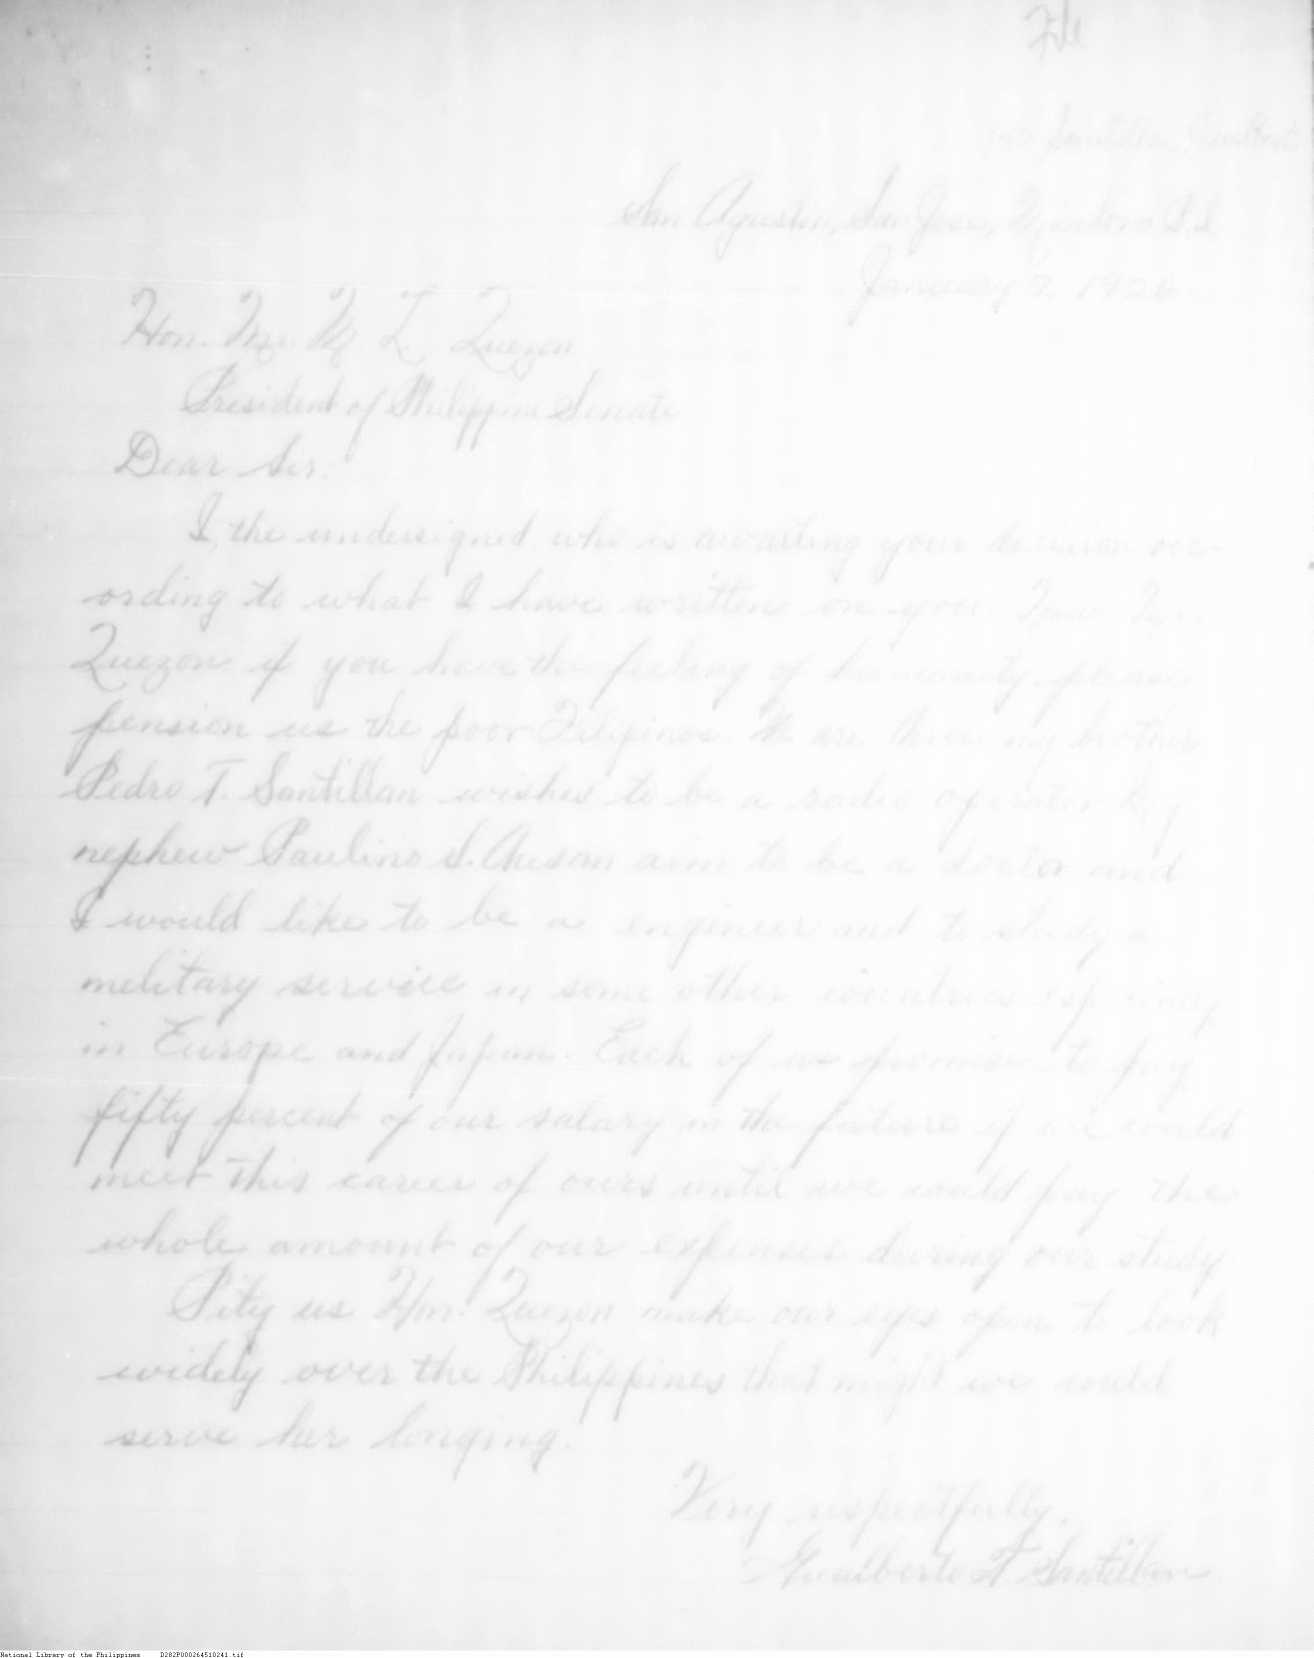 File
Santillan, Gualberto
San Agustin, San Jose, Mindoro P.I.
January 9, 1926
Hon. Mr. M. L. Quezon
President of Philippine Senate
Dear Sir.
I, the undersigned who is awaiting your decision acc-
ording to what I have written on you. Now Mr.
Quezon if you have the feeling of humanity please
pension us the poor Filipinos. We are three my brother
Pedro T. Santillan wishes to be a radio operator My
nephew Paulino S. aim to be a doctor and
I would like to be a engineer and to study a
melitary service in some other countries
in Europe and Japan. Each of us promise to pay
fifty percent of our salary in the future if we could
meet this career of ours until we could pay the
whole amount of our expenses during our study
Pity us Hon. Quezon make our eyes open to look
widely over the Philippines that might we could
serve her longing.
Very respectfully,
Gualberto T. Santillan
National Library of the Philippines D282P000264510241.tif